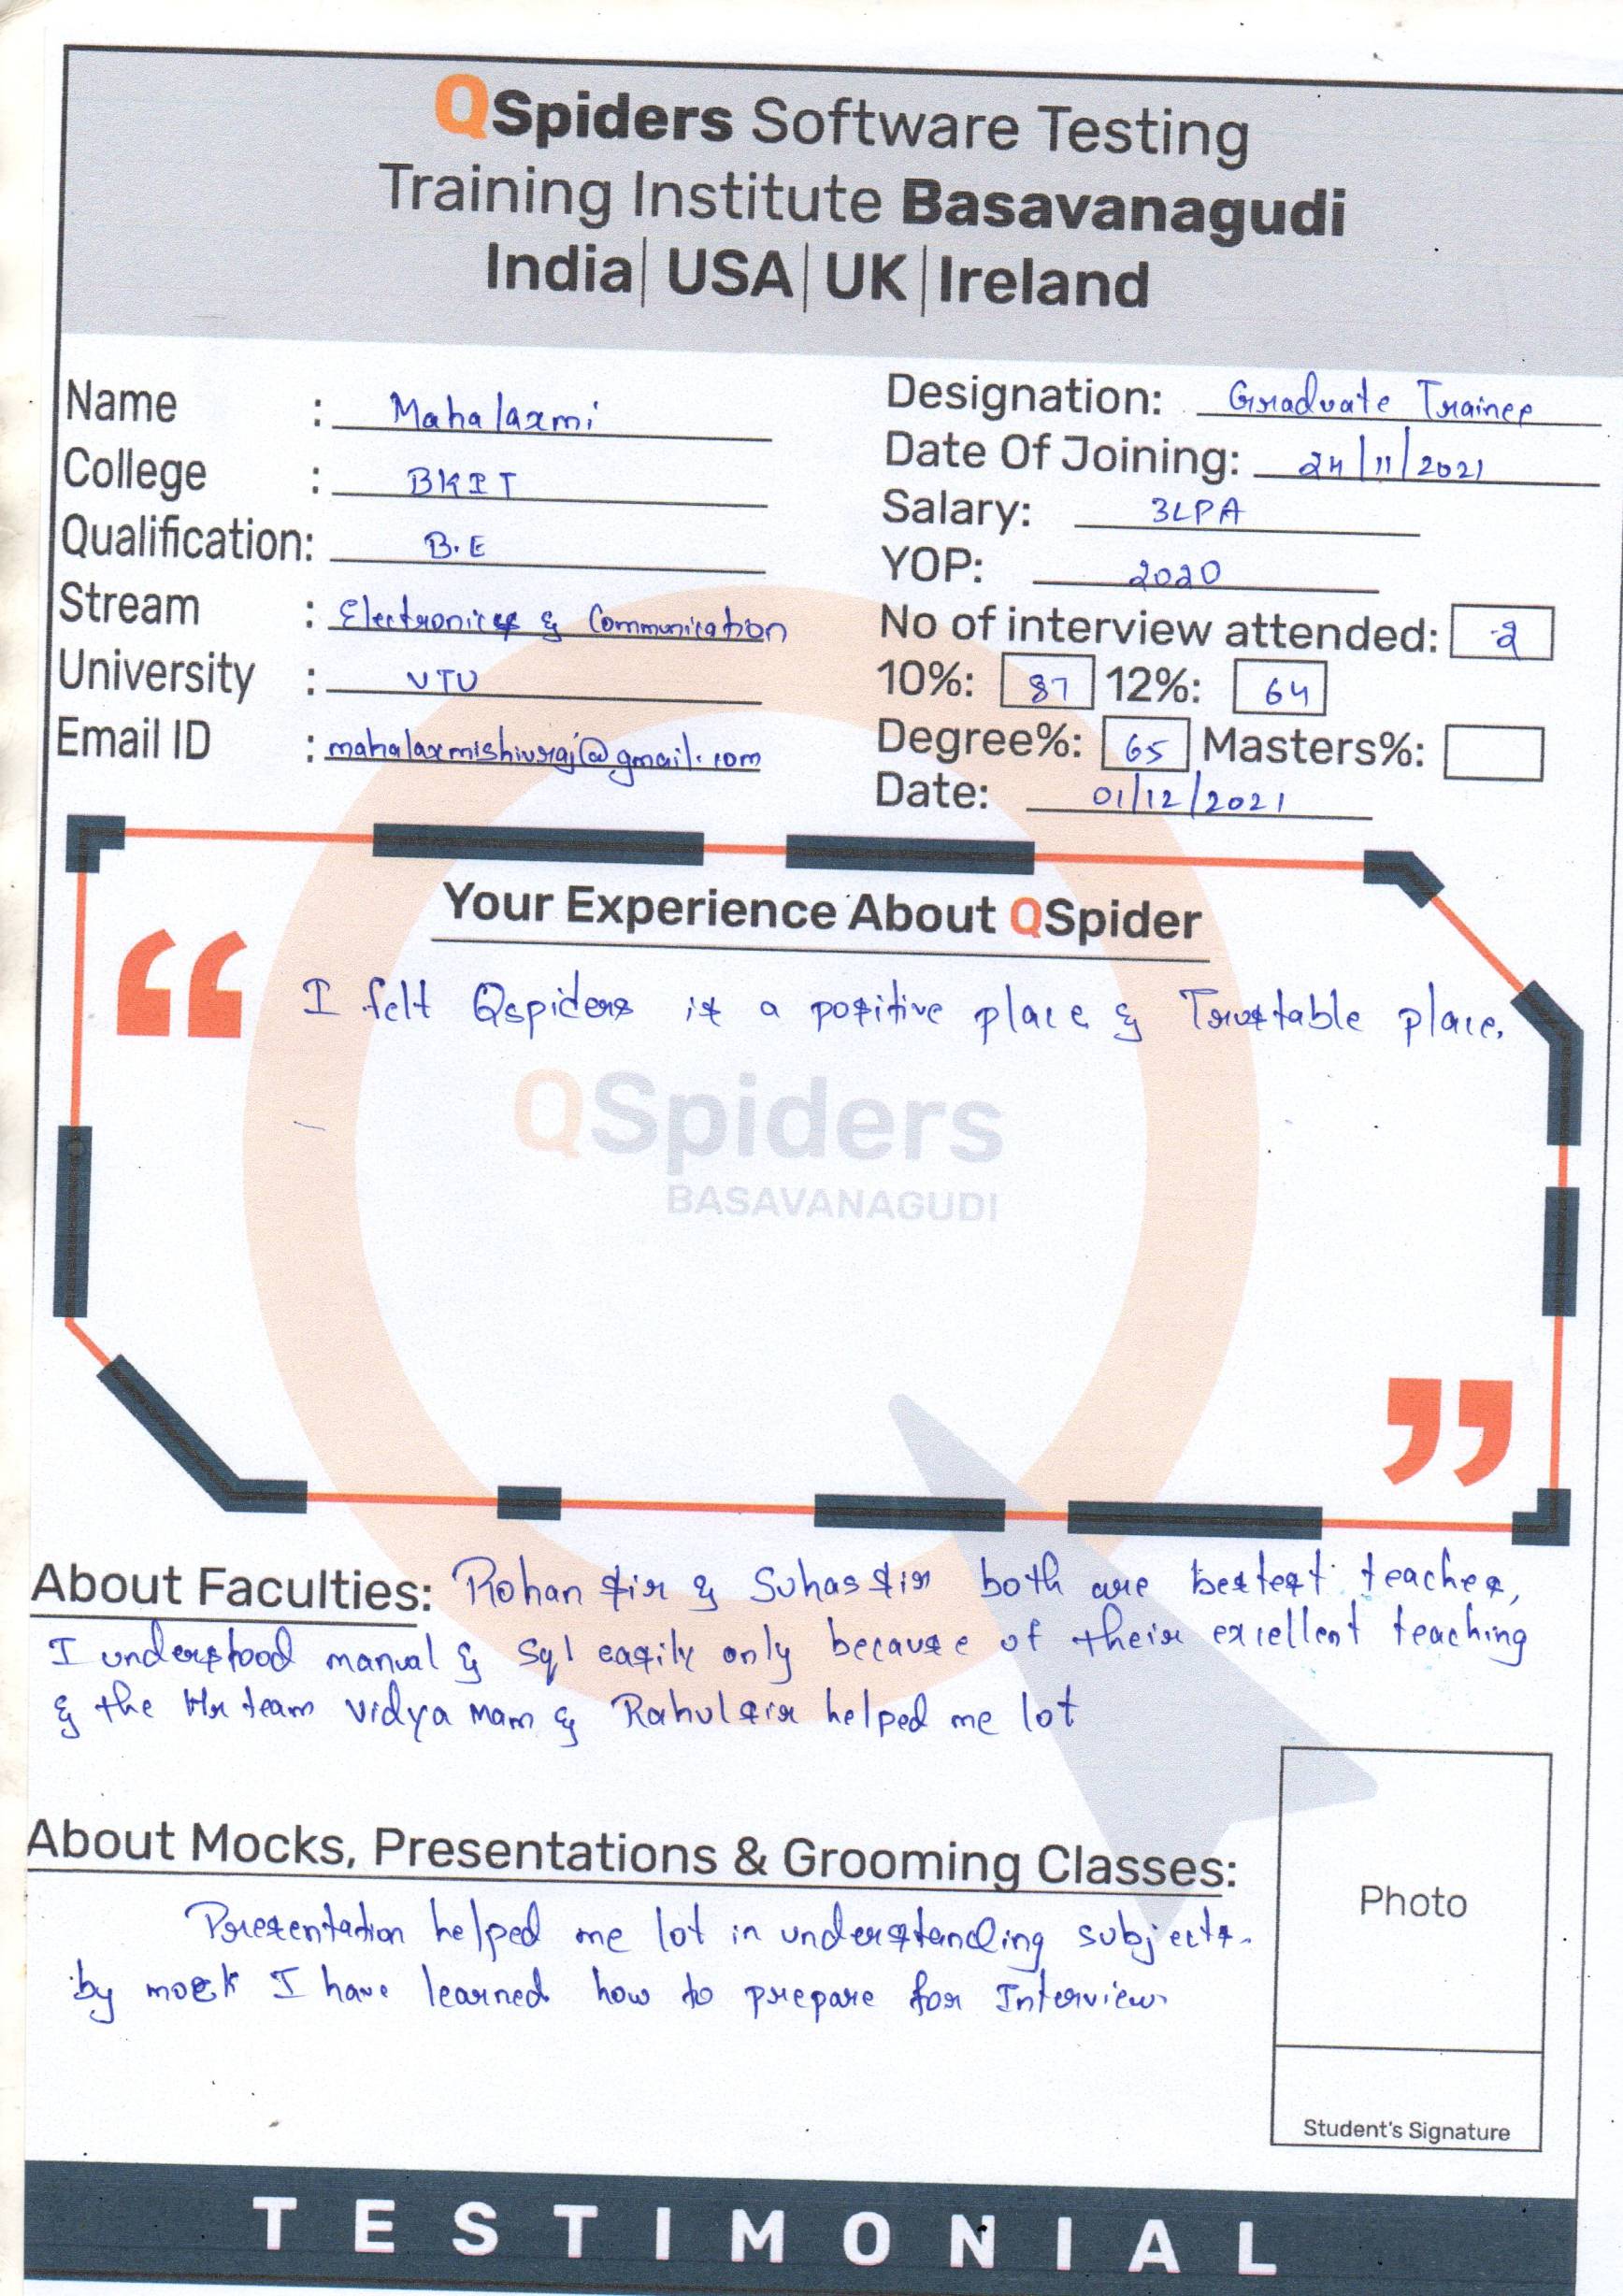 QSpiders Software Testing
Training Institute Basavanagudi
India| USA| UK| Ireland
Name : Mahalaxmi
College : BKIT
Qualification: B.E
Stream : Electronics & Communication
University : VTU
Email ID : mahalaxmishivraj@gmail.com
Designation: Graduate Trainee
Date Of Joining: 24/11/2021
Salary: 3LPA
YOP: 2020
No of interview attended: 2
10%: 87 12%: 64
Degree%: 65 Masters%:
Date: 01/12/2021
Your Experience About QSpider
I felt Qspiders is a positive place & Trustable place.
QSpiders
BASAVANAGUDI
About Faculties: Rohan sir & Suhas sir both are bestest teaches,
I understood manual & Sql easily only because of their excellent teaching
& the Hr team vidya mam & Rahul sir helped me lot
About Mocks, Presentations & Grooming Classes:
Presentation helped me lot in understanding subjects.
by mock I have learned how to prepare for Interview
Photo
Student's Signature
TESTIMONIAL